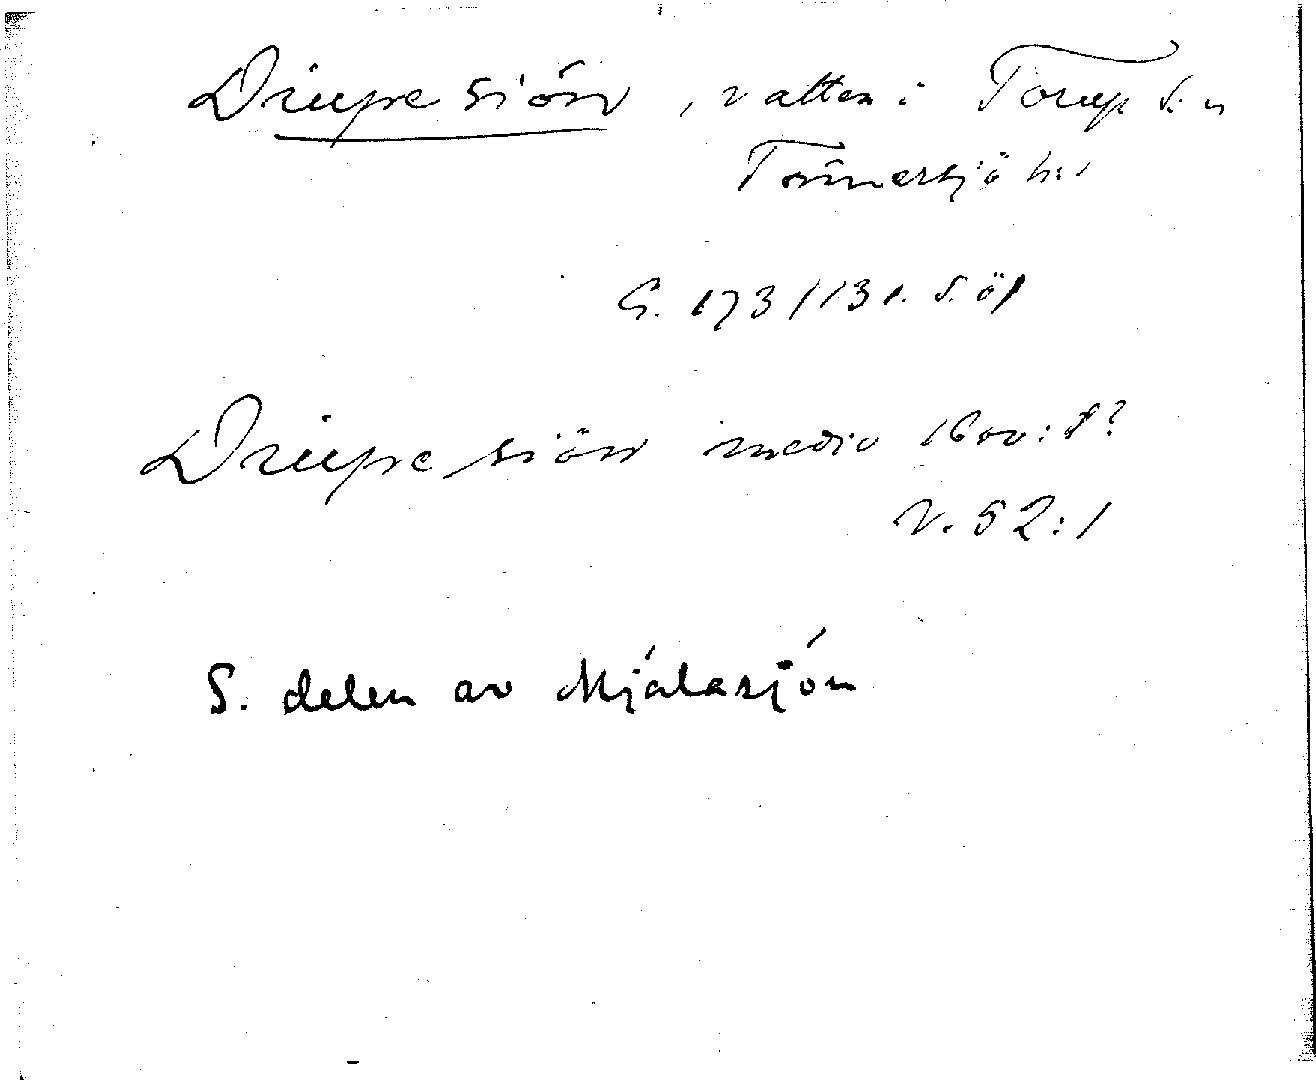 Diupe siön, vatten i Torup s:n
Tönnersjö h:d
G. 173/131. S. öf
Diupe siön medio 1600:t?
V. 52:1
S. delen av Mjälasjön